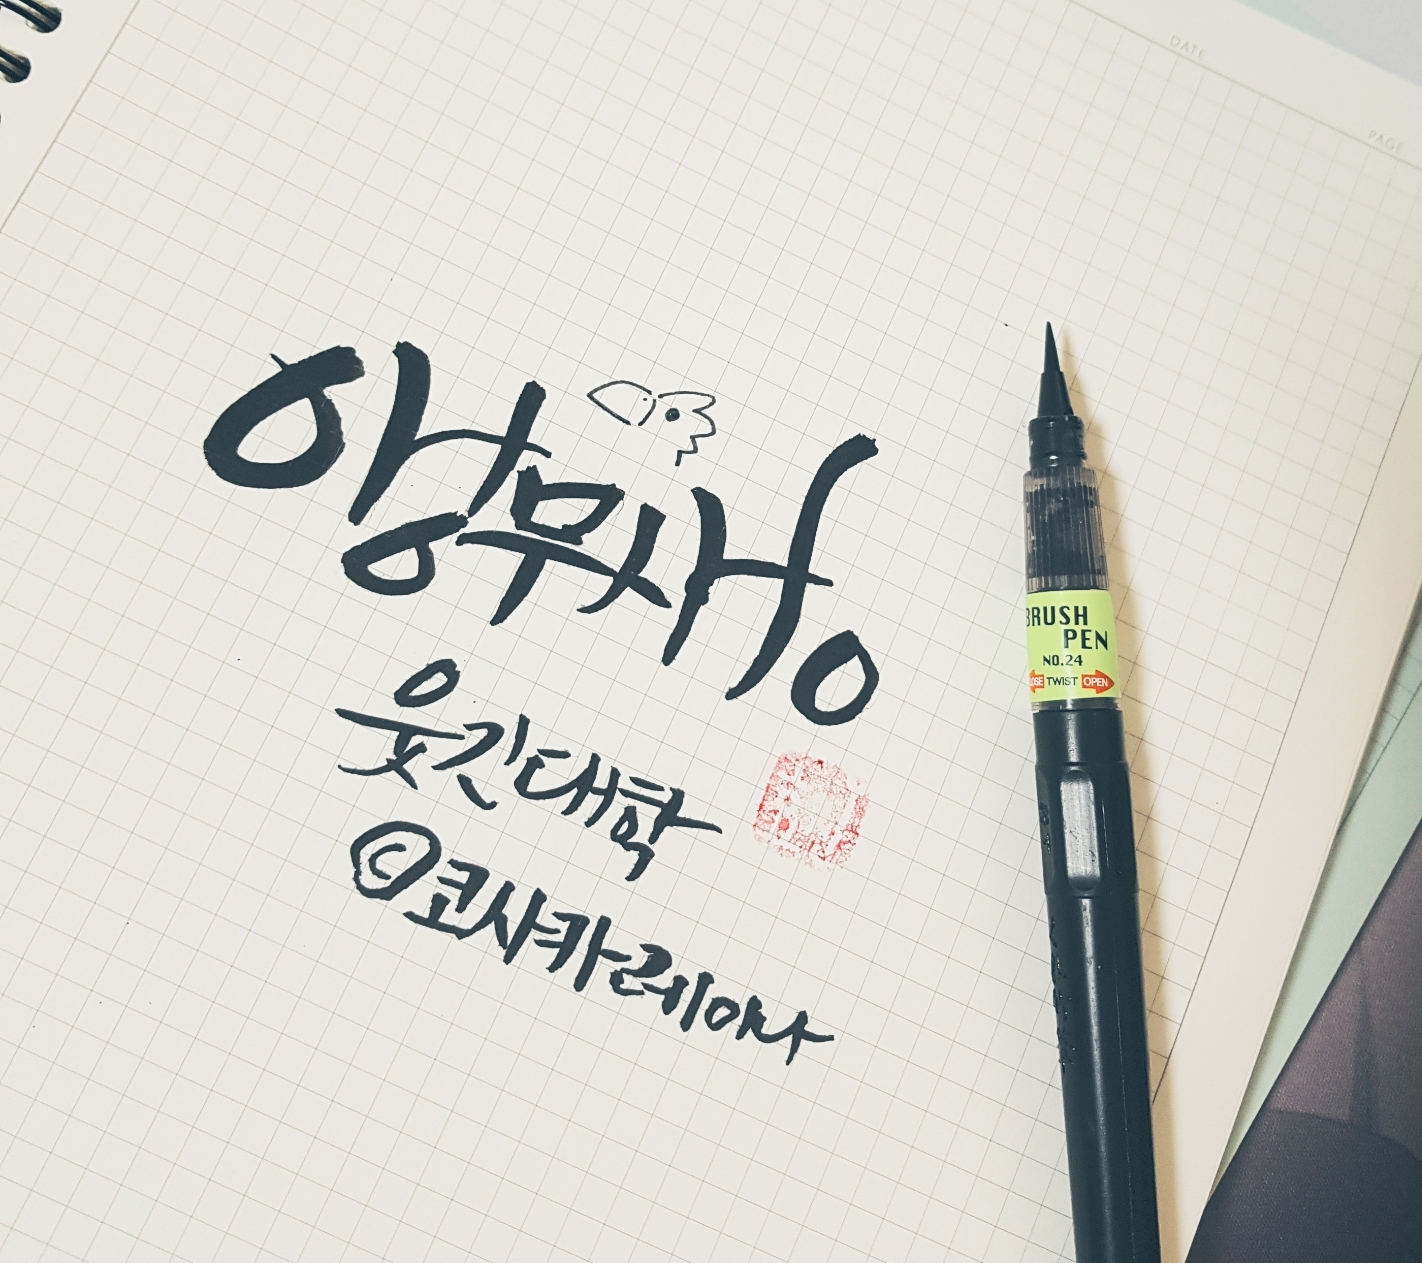 DATE
PAGE
앵무새o
웃긴대학
©코사카레이나
BRUSH
PEN
NO.24
TWIST OPEN